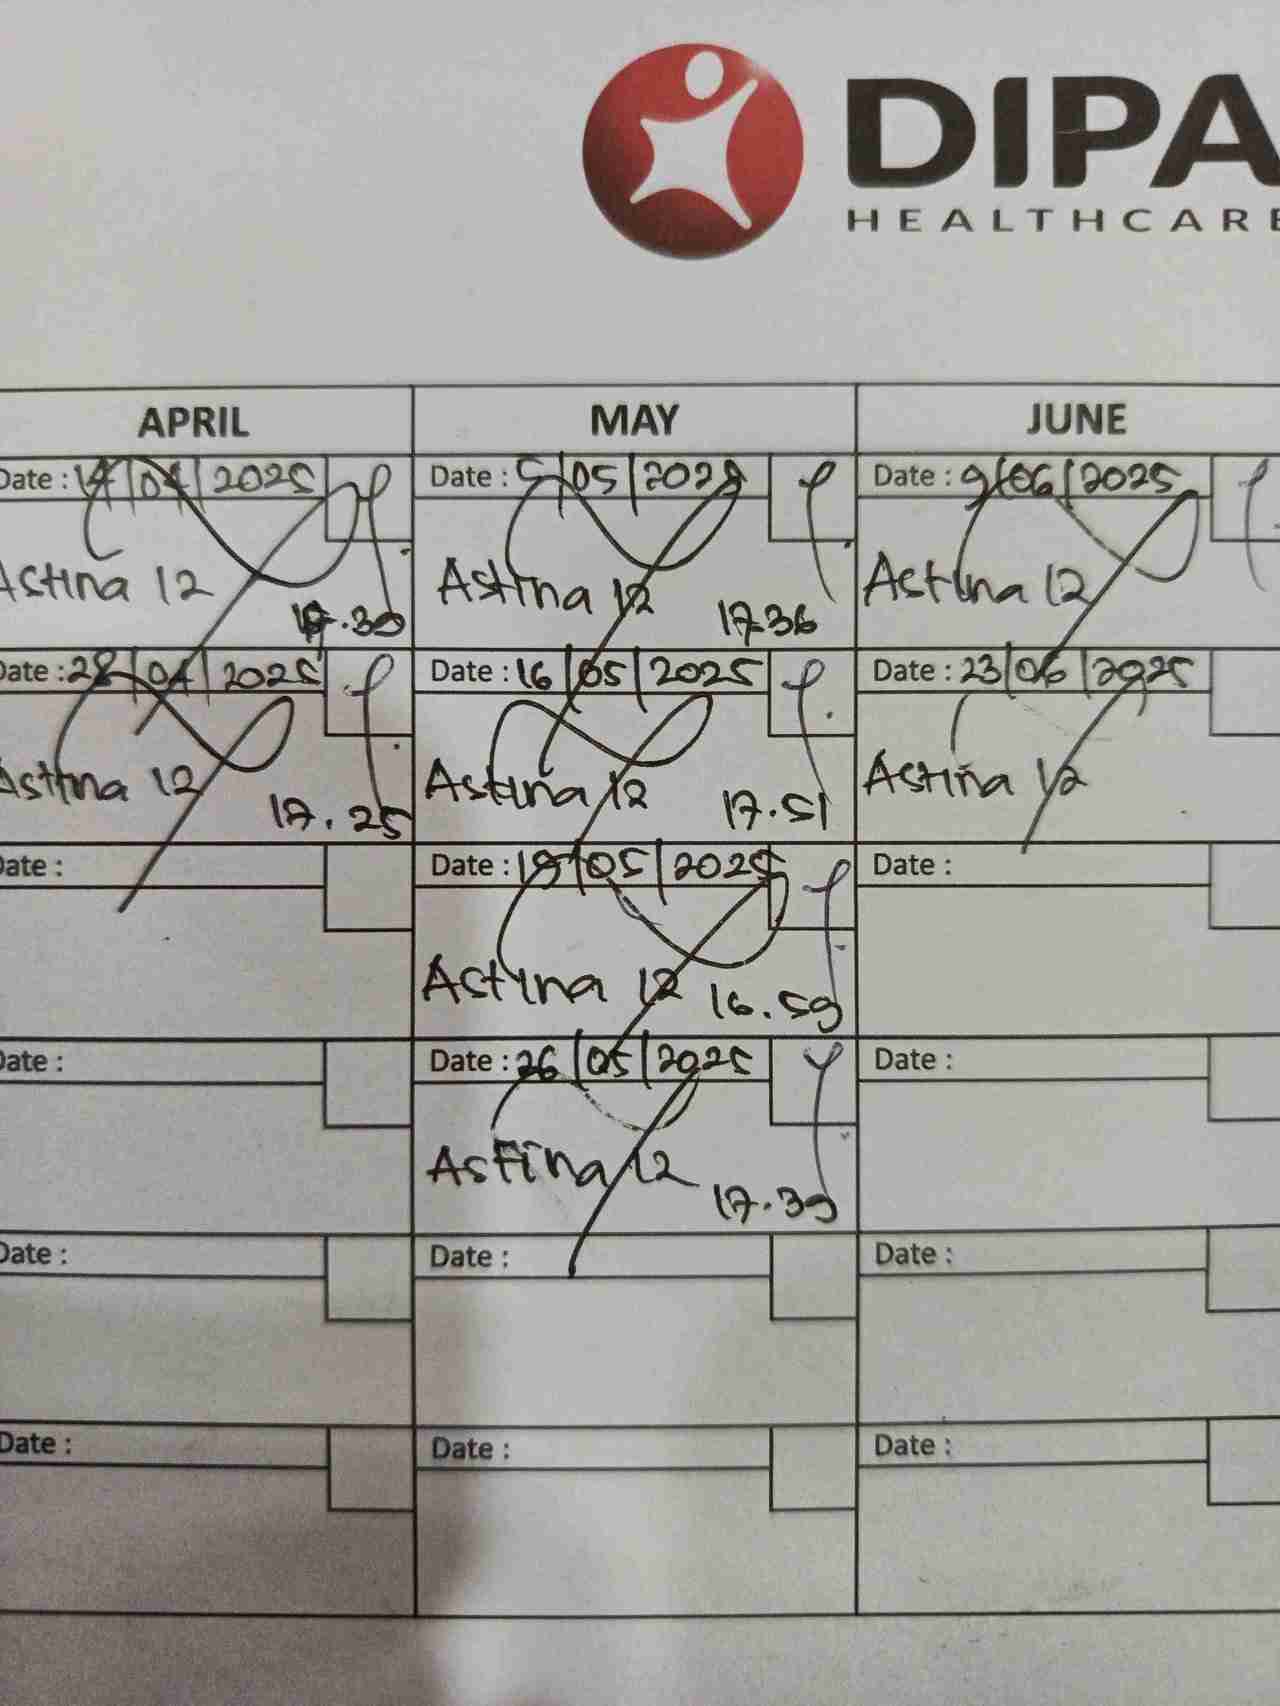 DIPA
HEALTHCARE
APRIL
MAY
JUNE
Date : 14/04/2025
Astina 12
Date : 5/05/2025
Astina 12
17.36
Date : 9/06/2025
Astina 12
Date : 28/04/2025
Astina 12
17.25
Date : 16/05/2025
Astina 12
17.51
Date : 23/06/2025
Astina 12
Date :
Date : 19/05/2025
Astina 12
16.59
Date :
Date :
Date : 26/05/2025
Astina 12
17.39
Date :
Date :
Date :
Date :
Date :
Date :
Date :